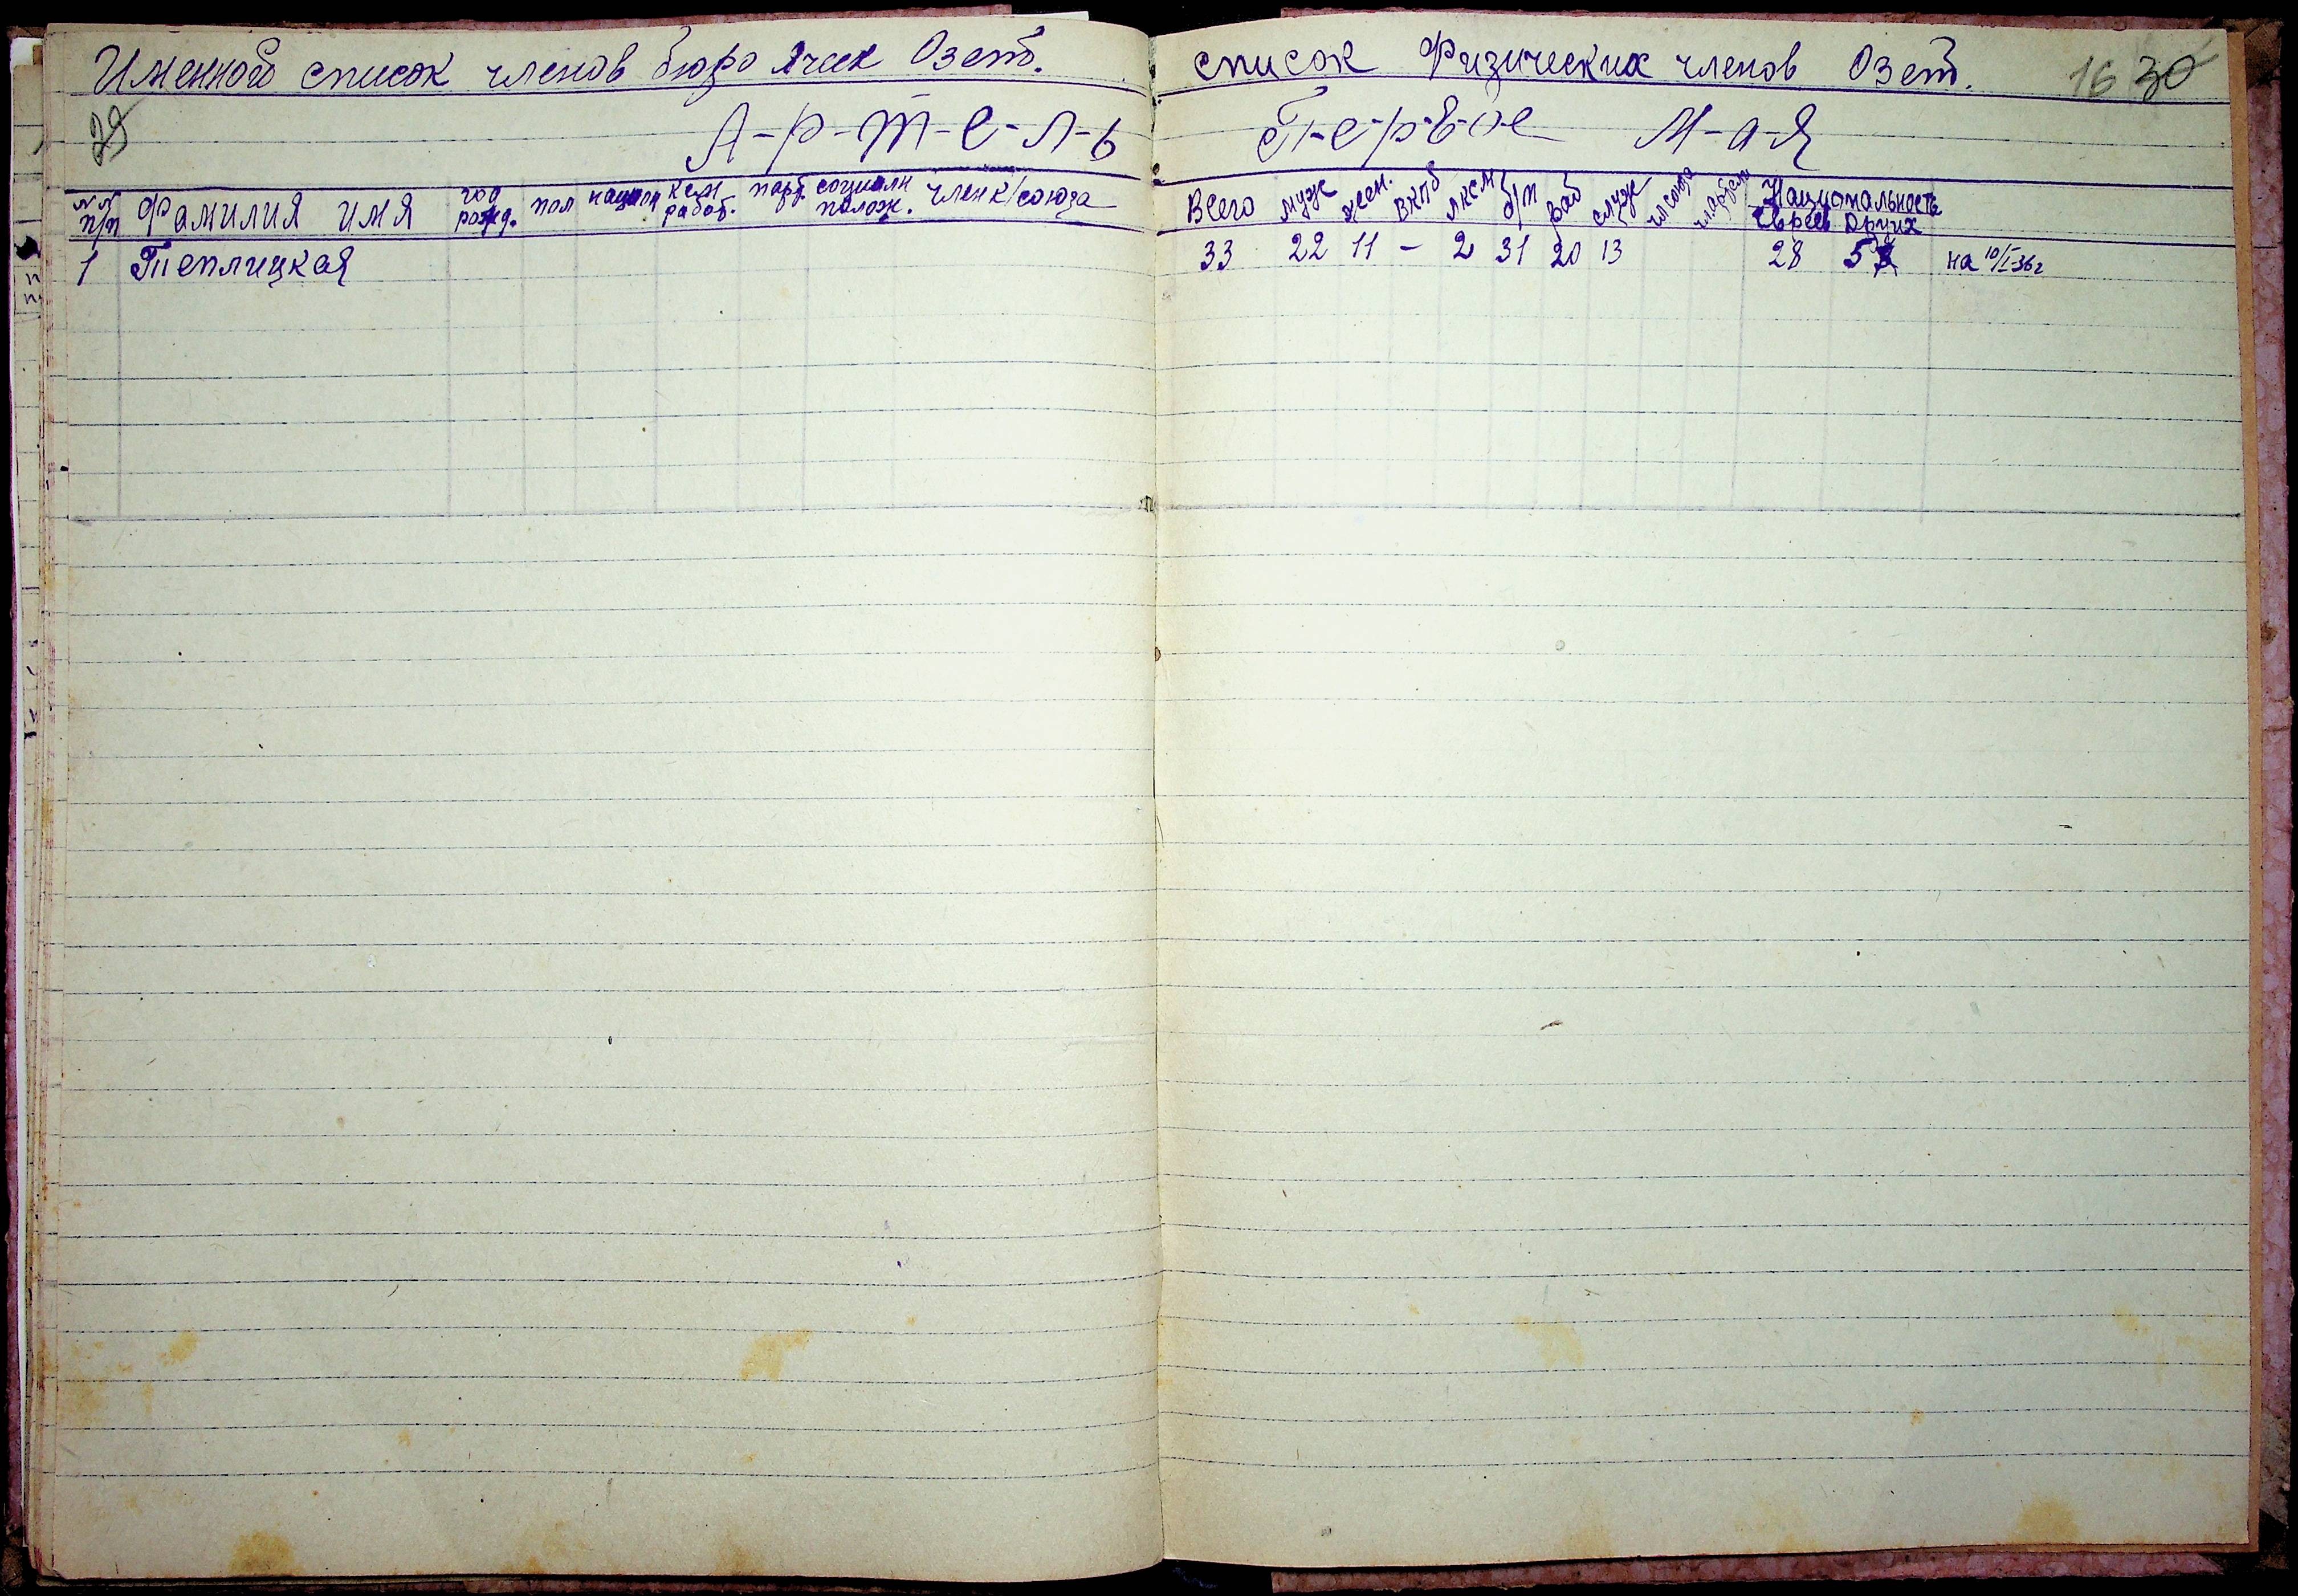 Именной список членов бюро ячеек Озет.
29
А-р-т-е-л-ь
№№ п/п Фамилия имя год рожд. пол национ кем работ. парт. социалн полож. член к/союза
1 Теплицкая
список Физических членов Озет. 16 30
П-е-р-в-о-е М-а-я
Всего муж жен. ВКПб ЛКСМ б/п раб служ чл союза Национальность
Евреев Других
33 22 11 – 2 31 20 13 28 5 на 10/I-36 г